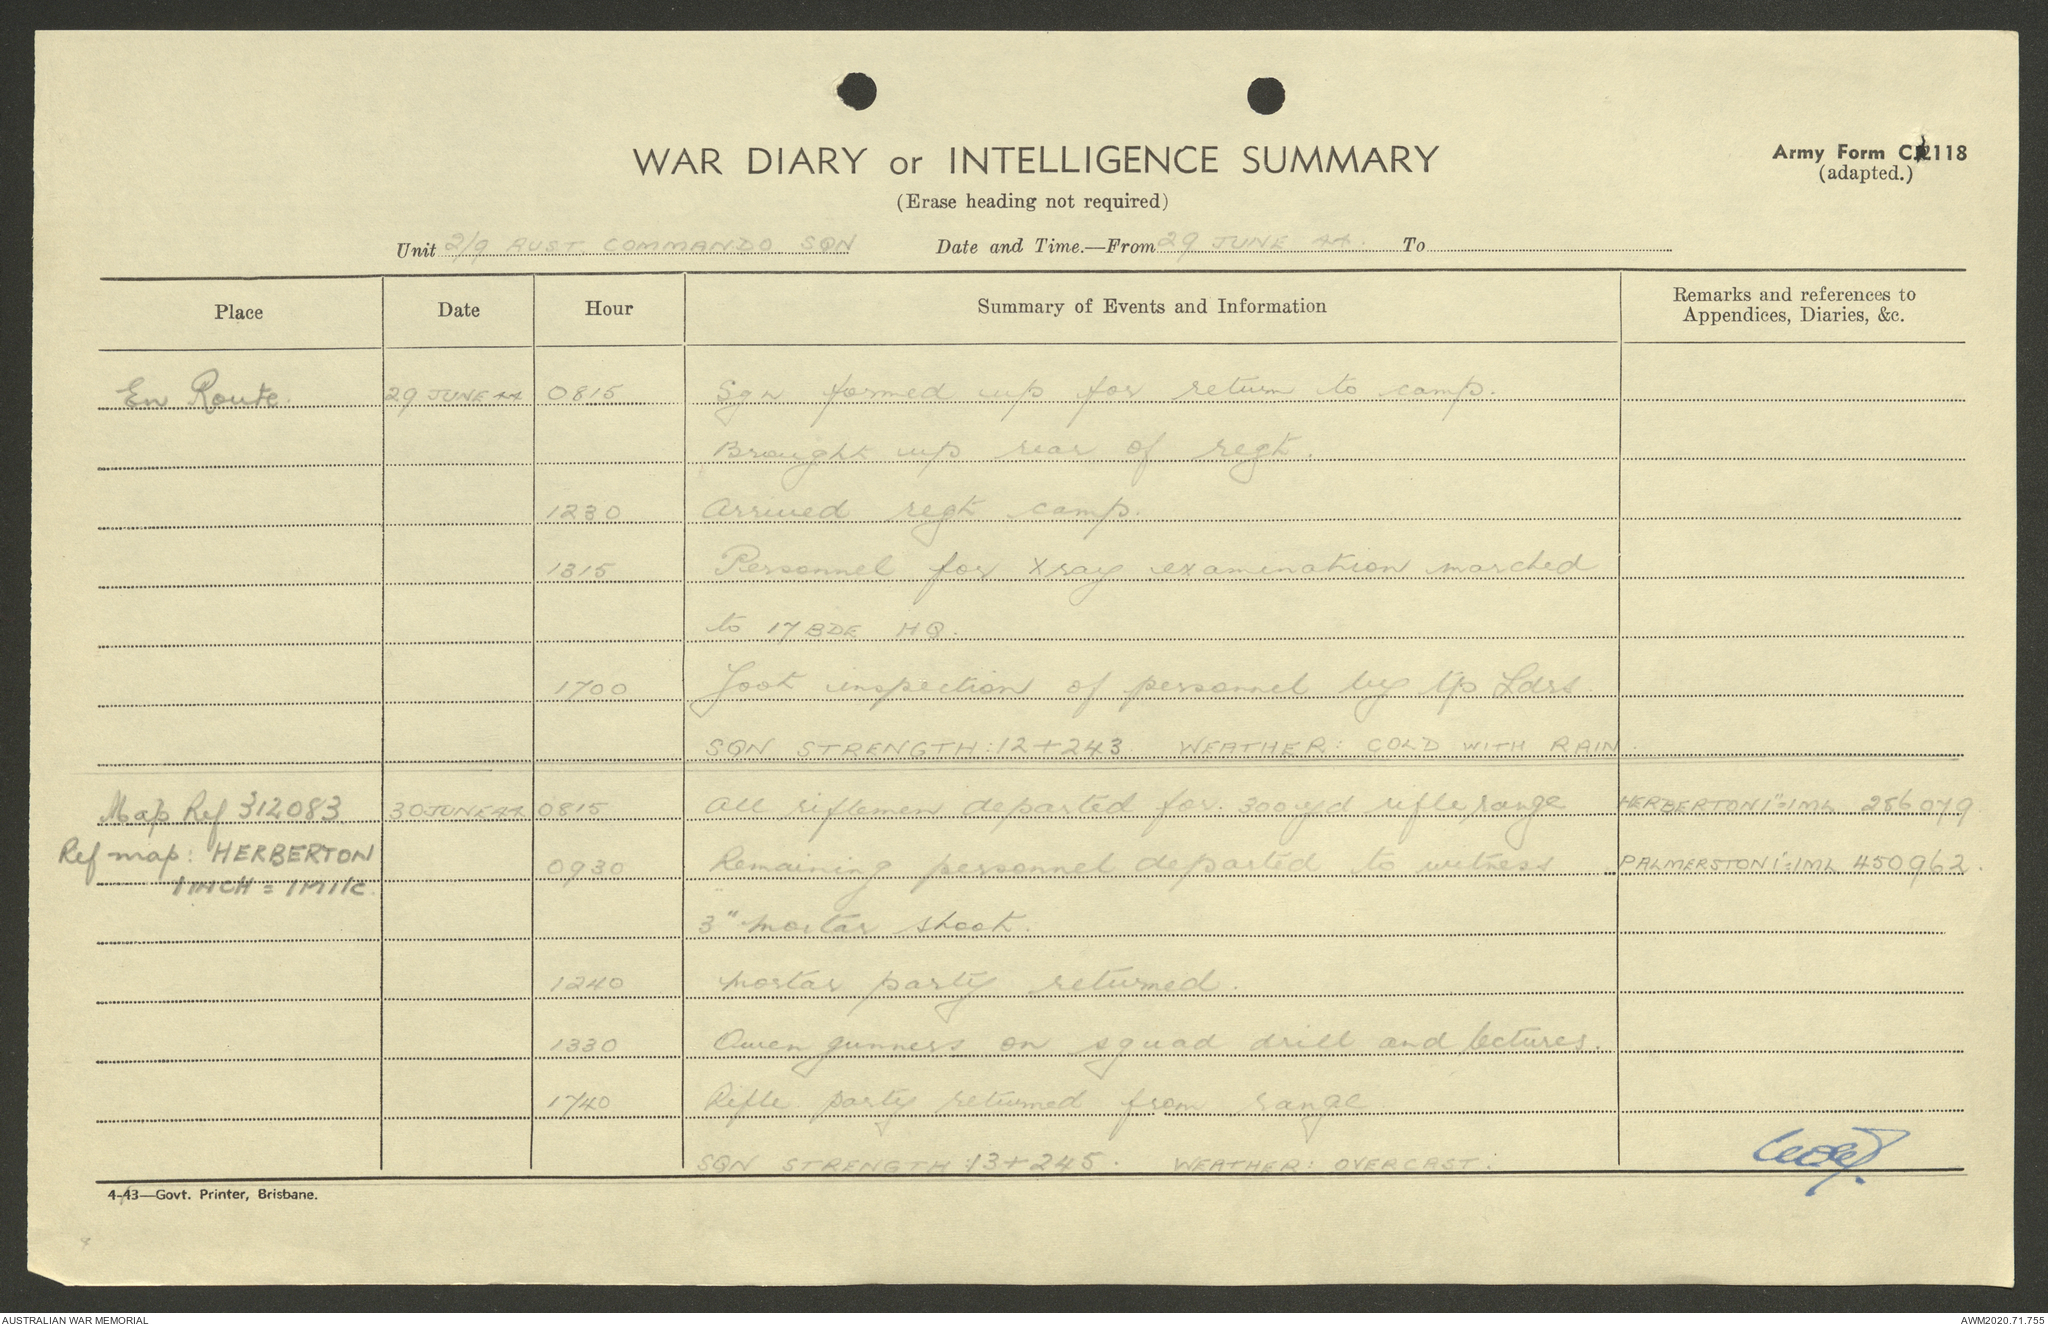 WAR DIARY or INTELLIGENCE SUMMARY
(Erase heading not required)
Army Form C.2118
(adapted.)
Unit 2/9 AUST. COMMANDO SQN Date and Time.—From 29 JUNE 44. To
Place Date Hour Summary of Events and Information Remarks and references to
Appendices, Diaries, &c.
En Route. 29 JUNE 44 0815 Sqn formed up for return to camp.
Brought up rear of regt.
1230 Arrived regt camp.
1315 Personnel for Xray examination marched
to 17 BDE HQ.
1700 Foot inspection of personnel by Tp Ldrs.
SQN STRENGTH: 12+243 WEATHER: COLD WITH RAIN.
Map Ref 312083 30 JUNE 44 0815 All riflemen departed for 300 yd rifle range HERBERTON 1"=1ML 286079
Ref map: HERBERTON
1 INCH = 1 MILE.
0930 Remaining personnel departed to witness PALMERSTON 1"=1ML 450962.
3" mortar shoot.
1240 Mortar party returned.
1330 Owen gunners on squad drill and lectures.
1740 Rifle party returned from range
SQN STRENGTH: 13+245. WEATHER: OVERCAST.
4-43—Govt. Printer, Brisbane.
AUSTRALIAN WAR MEMORIAL
AWM2020.71.755